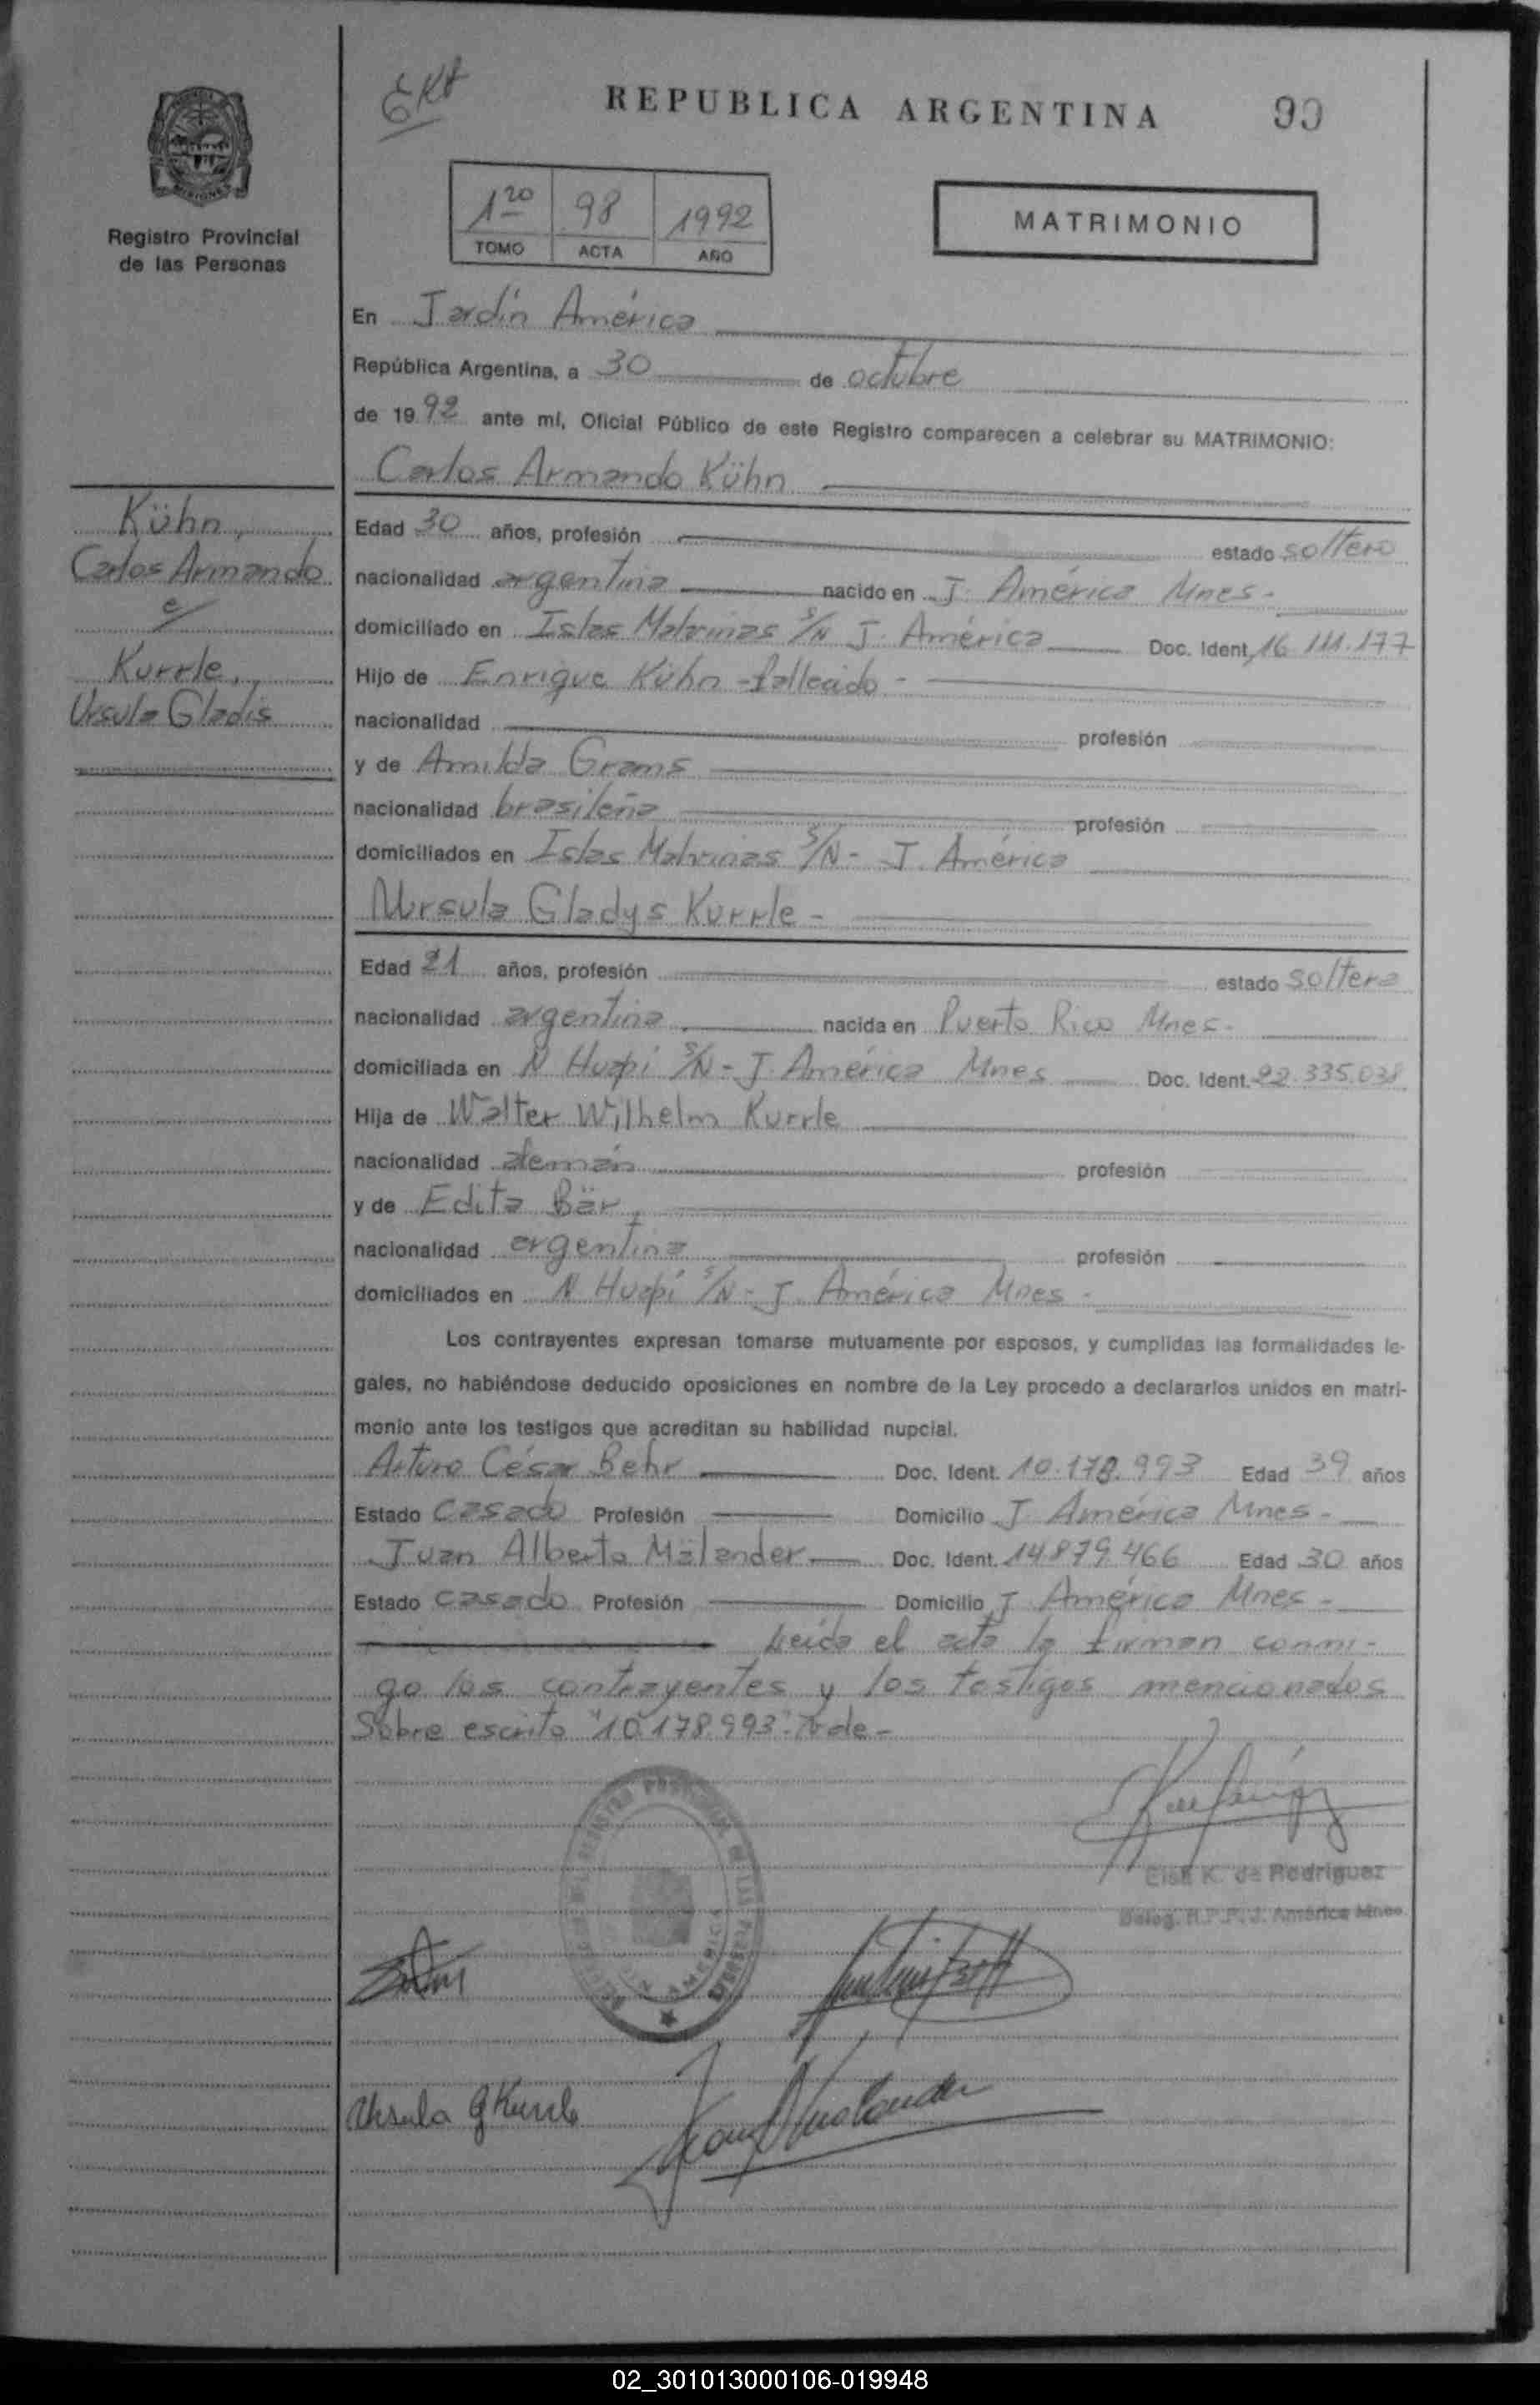 EKf
REPUBLICA ARGENTINA 99
1ro 98 1992
TOMO ACTA AÑO
MATRIMONIO
Registro Provincial
de las Personas
En Jardín América
República Argentina, a 30 de octubre
de 1992 ante mí, Oficial Público de este Registro comparecen a celebrar su MATRIMONIO:
Carlos Armando Kühn
Kühn,
Carlos Armando
c/
Kurrle,
Ursula Gladis
Edad 30 años, profesión estado soltero
nacionalidad argentina nacido en J. América Mnes.
domiciliado en Islas Malvinas S/N J. América Doc. Ident. 16.111.177
Hijo de Enrique Kühn - fallecido -
nacionalidad profesión
y de Amilda Grams
nacionalidad brasileña profesión
domiciliados en Islas Malvinas S/N - J. América
Ursula Gladys Kurrle -
Edad 21 años, profesión estado soltera
nacionalidad argentina nacida en Puerto Rico Mnes.
domiciliada en N Huapi S/N - J. América Mnes Doc. Ident. 22.335.038
Hija de Walter Wilhelm Kurrle
nacionalidad alemán profesión
y de Edita Bär
nacionalidad argentina profesión
domiciliados en N Huapi S/N - J. América Mnes -
Los contrayentes expresan tomarse mutuamente por esposos, y cumplidas las formalidades le-
gales, no habiéndose deducido oposiciones en nombre de la Ley procedo a declararlos unidos en matri-
monio ante los testigos que acreditan su habilidad nupcial.
Arturo César Behr Doc. Ident. 10.178.993 Edad 39 años
Estado casado Profesión Domicilio J. América Mnes -
Juan Alberto Mälander Doc. Ident. 14879466 Edad 30 años
Estado casado Profesión Domicilio J América Mnes -
Leída el acta la firman conmi-
go los contrayentes y los testigos mencionados
Sobre escrito "10.178.993". Vale -
Elsa K. de Rodriguez
Deleg. R.P.P. J. América Mnes.
Ursula G Kurrle
02_301013000106-019948